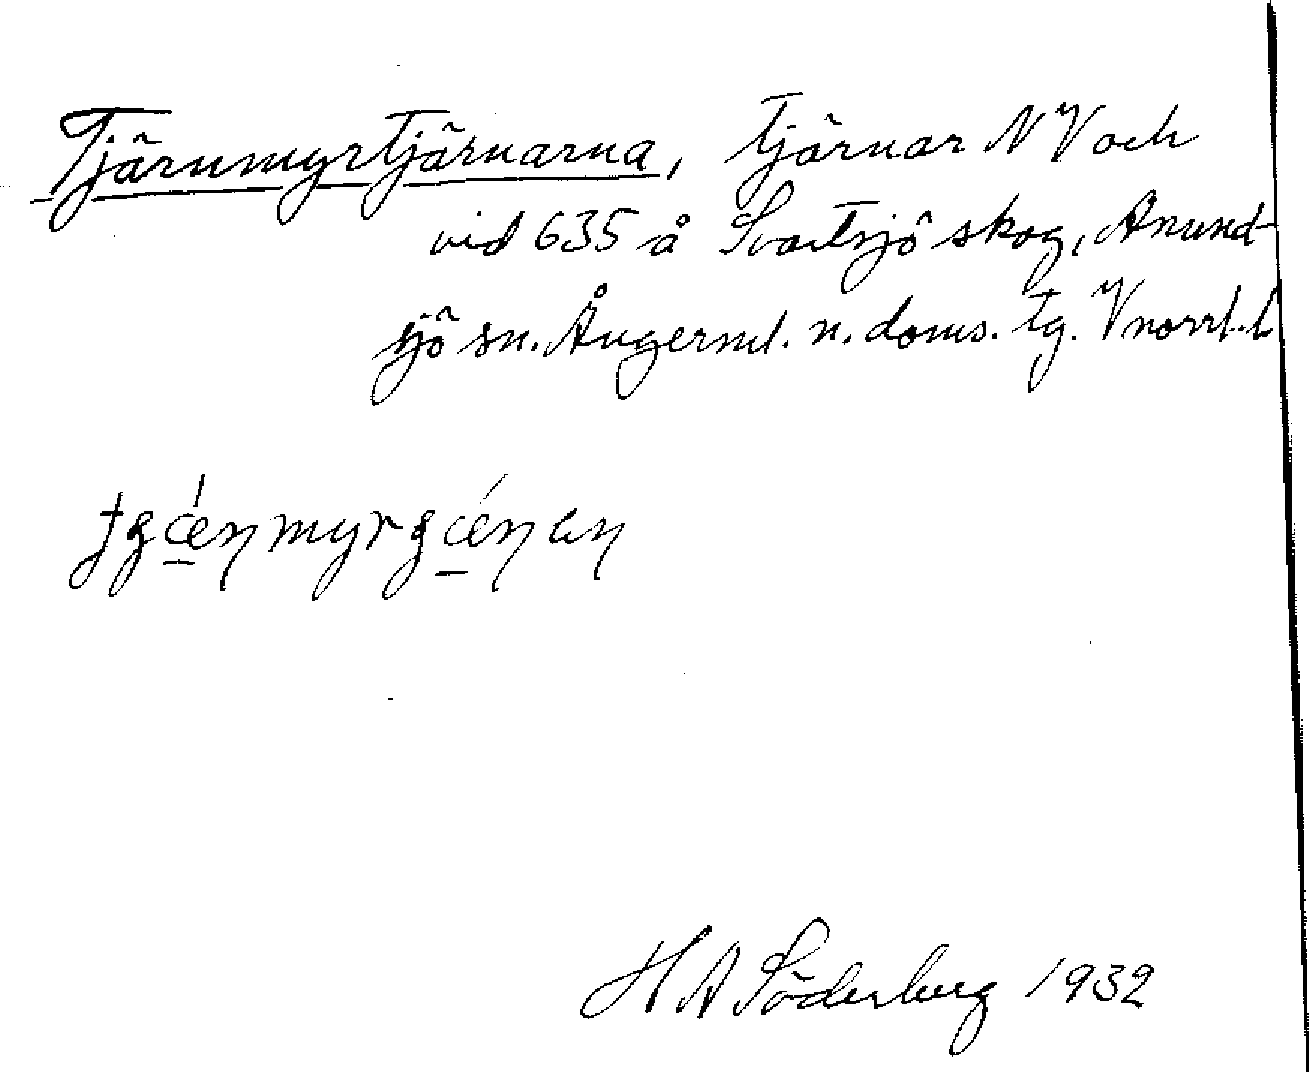 Tjärnmyrtjärnarna, tjärnar NV och
vid 635 å Svartsjö skog, Anund-
sjö sn. Ångerml. n. doms. tg. Vnorrl. l
H A Söderberg 1932